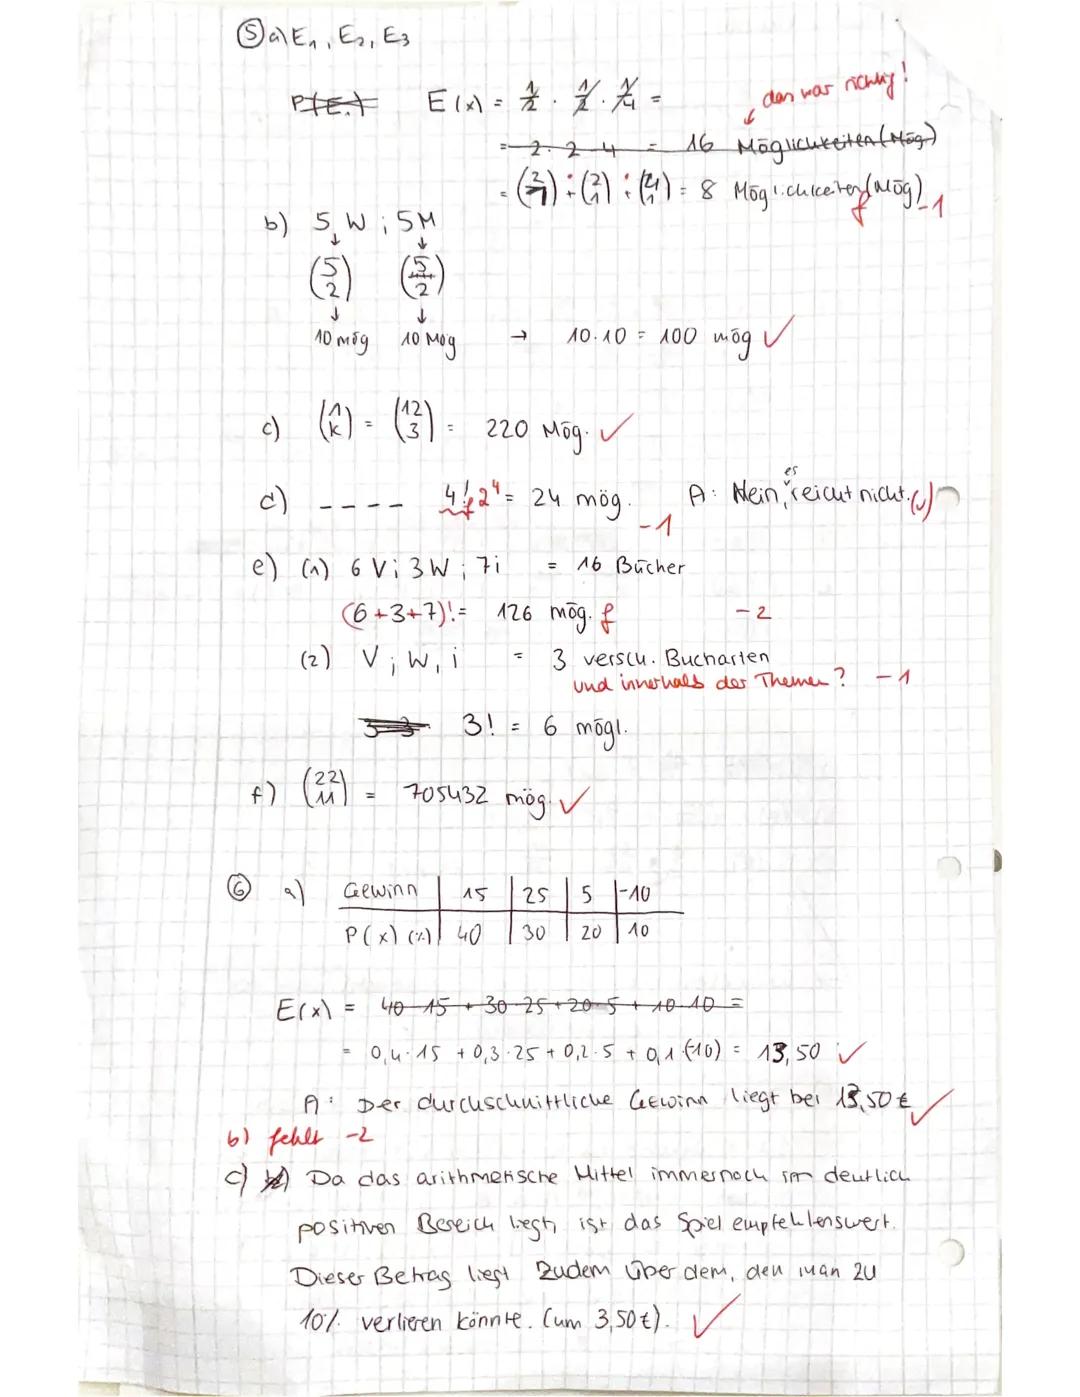 ⑤ a) E₁, E₂, E₃
P(E.) E(x) = 1/2 · 1/2 · 1/4 =
das war richtig!
= 2 · 2 · 4 = 16 Möglichkeiten (Mög)
= (2 1) · (2 1) · (4 1) = 8 Möglichkeiten (Mög) f -1
b) 5 W ; 5 M
↓ ↓
(5 2) (5 2)
↓ ↓
10 mög 10 Mög → 10·10 = 100 mög ✓
c) (n k) = (12 3) = 220 Mög. ✓
d) ---- 4! f 2⁴ = 24 mög. -1 A: Nein, es reicht nicht. (✓)
e) (1) 6 V ; 3 W ; 7 i = 16 Bücher
(6+3+7)! = 126 mög. f -2
(2) V ; W, i = 3 versch. Bucharten
und innerhalb der Themen? -1
3·3 3! = 6 mögl.
f) (22 11) = 705432 mög. ✓
⑥ a) Gewinn | 15 | 25 | 5 | -10
P(x) (%) | 40 | 30 | 20 | 10
E(x) = 40·15 + 30·25 + 20·5 + 10·10 =
= 0,4·15 + 0,3·25 + 0,2·5 + 0,1·(-10) = 13,50 ✓
A: Der durchschnittliche Gewinn liegt bei 13,50 € ✓
b) fehlt -2
c) b) Da das arithmetische Mittel immernoch im deutlich
positiven Bereich liegt, ist das Spiel empfehlenswert.
Dieser Betrag liegt zudem über dem, den man zu
10% verlieren könnte. (um 3,50€). ✓